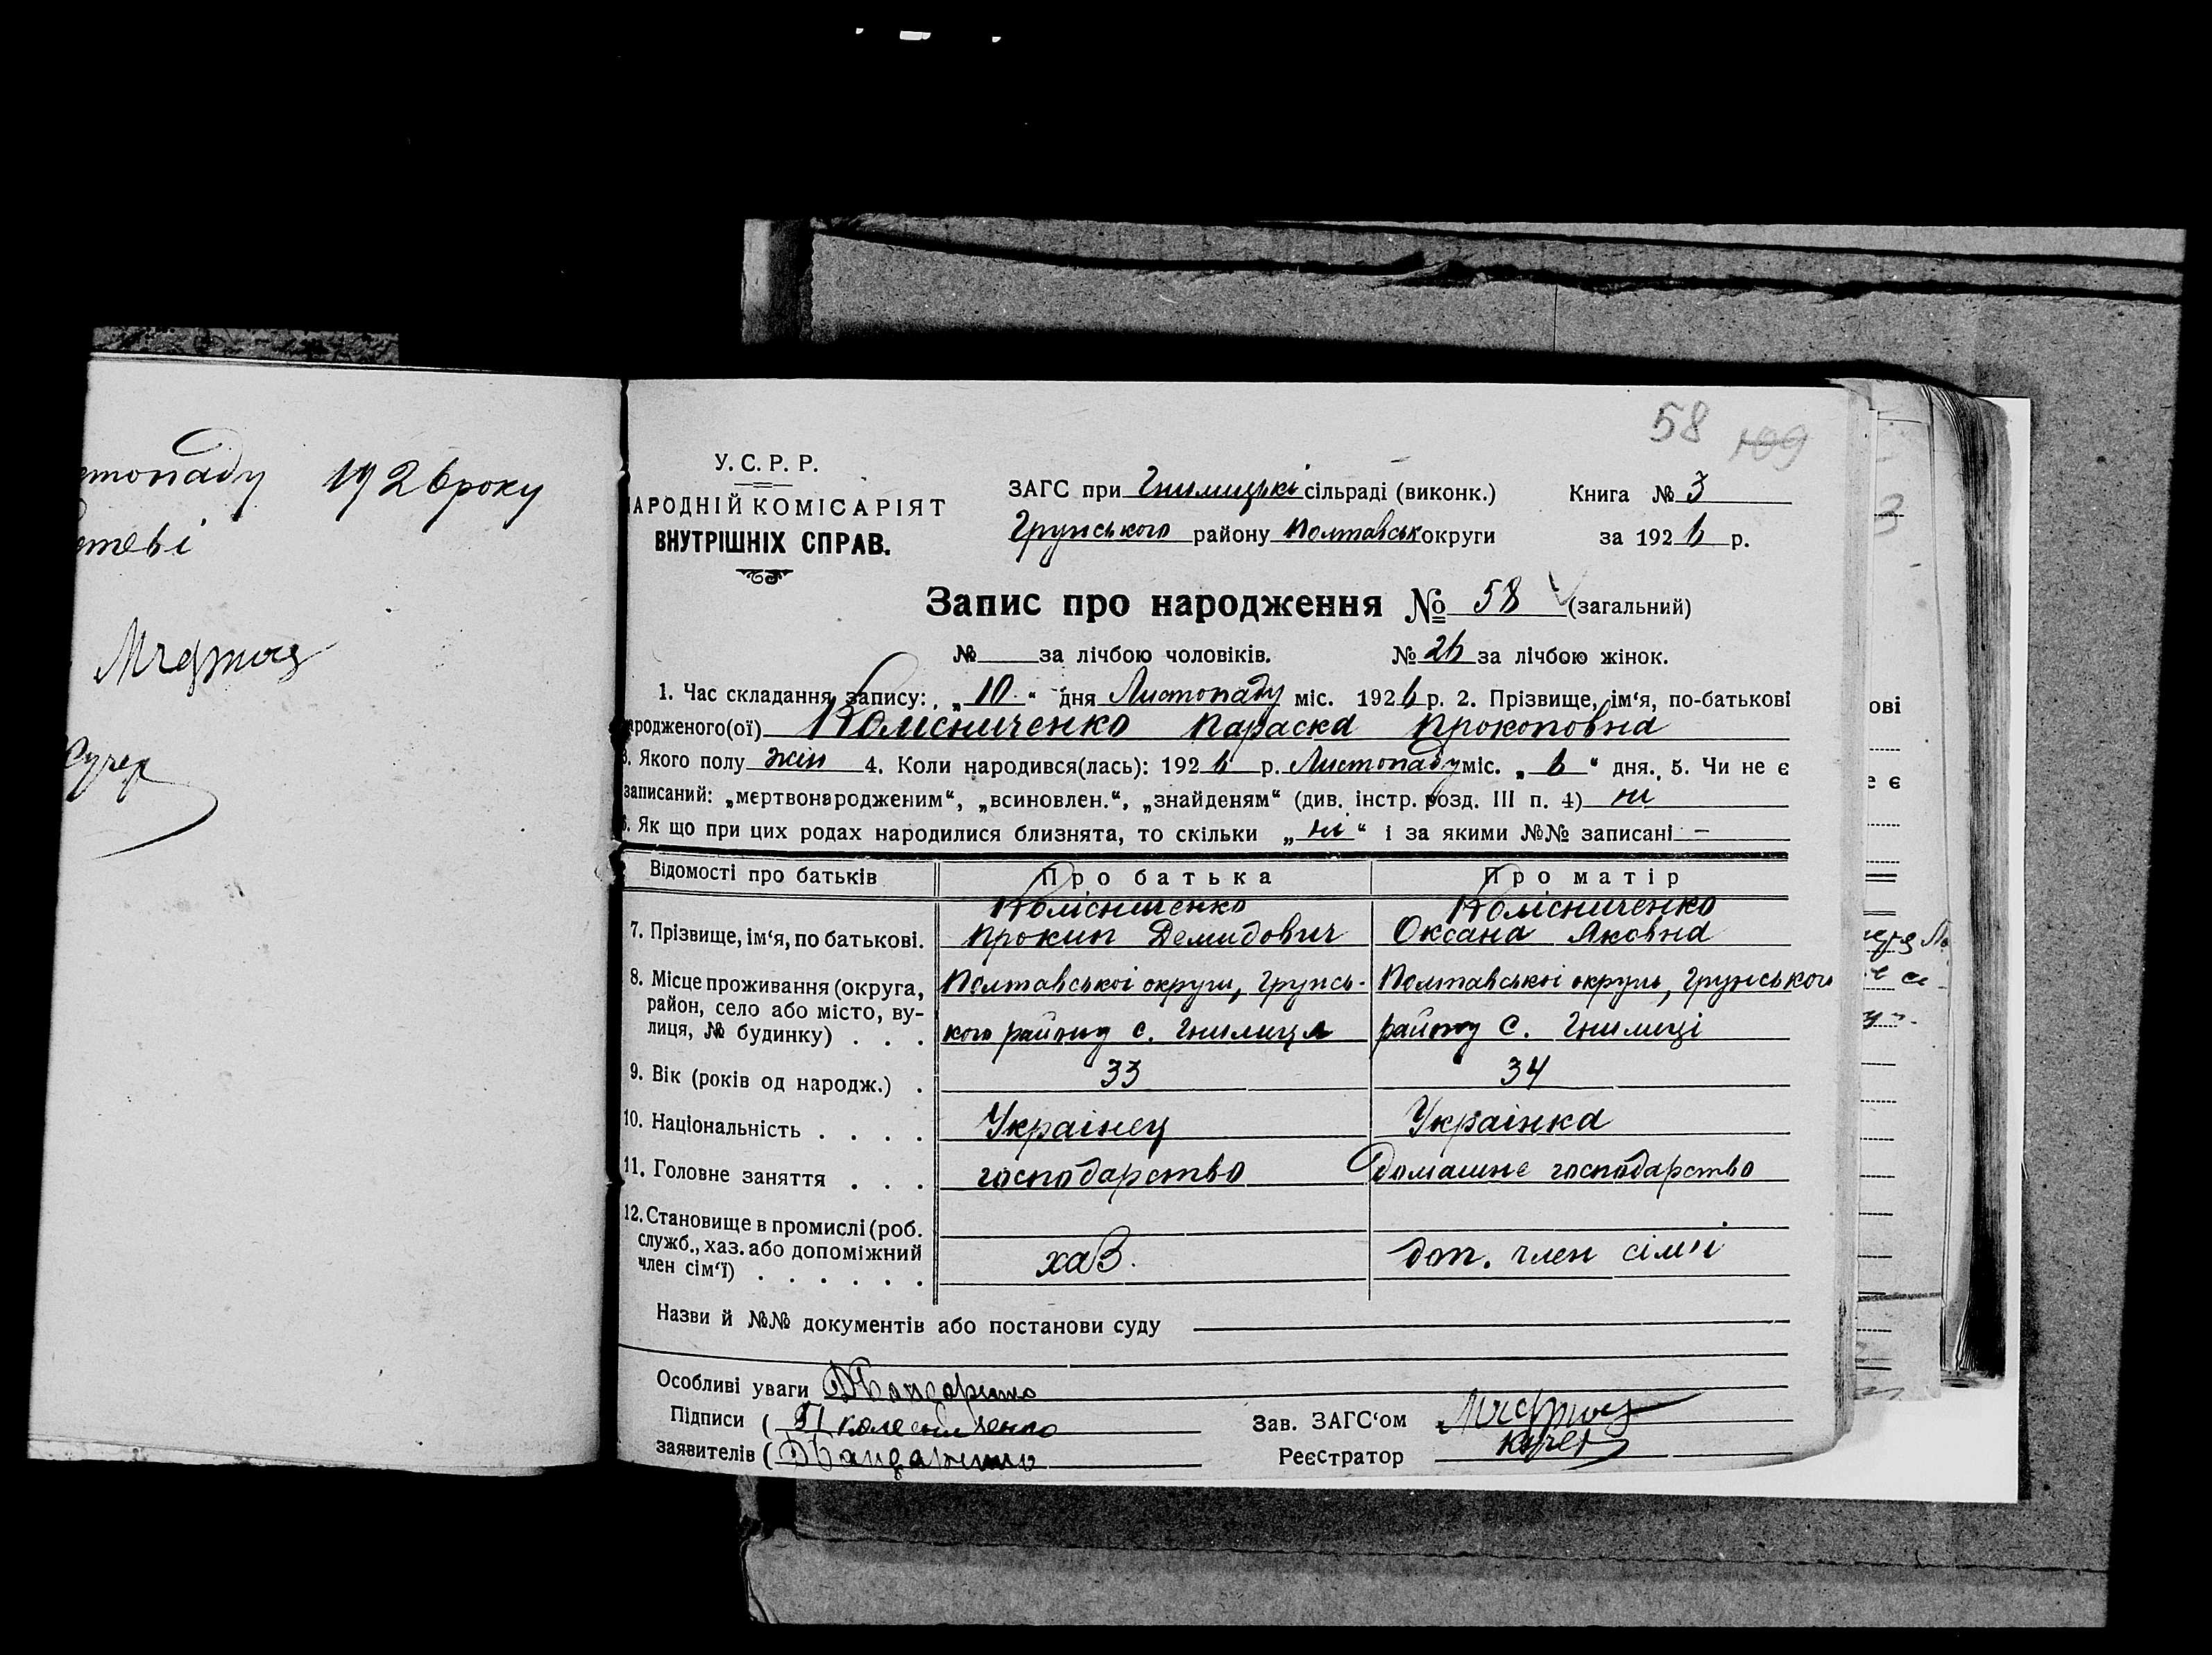 1926 року
Кучер
58 109
У. С. Р. Р.
АРОДНІЙ КОМІСАРІЯТ
ВНУТРІШНІХ СПРАВ.
ЗАГС при Гнилицькі сільраді (виконк.) Книга № 3
Грунського району Полтавськ округи за 192 6 р.
Запис про народження № 58 (загальний)
№ за лічбою чоловіків. № 26 за лічбою жінок.
1. Час складання запису: „ 10 “ дня Листопаду міс. 192 6 р. 2. Прізвище, ім‘я, по-батькові
ародженого(ої) Колісниченко Параска Прокоповна
3. Якого полу жін 4. Коли народився(лась): 192 6 р. Листопаду міс. „ 6 “ дня. 5. Чи не є
записаний: „мертвонародженим“, „всиновлен.“, „знайденям“ (див. інстр. розд. III п. 4) ні
6. Як що при цих родах народилися близнята, то скільки „ ні “ і за якими №№ записані —
Відомості про батьків Про батька Про матір
Колісниченко Колісниченко
7. Прізвище, ім‘я, по батькові. Прокип Демидович Оксана Яковна
8. Місце проживання (округа, Полтавської округи, Грунсь- Полтавської округи, Грунського
район, село або місто, ву-
лиця, № будинку) . . . кого району с. Гнилиця району с. Гнилиці
9. Вік (років од народж.) . 33 34
10. Національність . . . . Українец Українка
11. Головне заняття . . . господарство Домашне господарство
12. Становище в промислі (роб.
служб., хаз. або допоміжний хаз. доп. член сімʼі
член сім‘ї) . . . . . .
Назви й №№ документів або постанови суду
Особливі уваги
Підписи ( П колесниченко Зав. ЗАГС‘ом
заявителів ( Реєстратор Кучер
ові
є